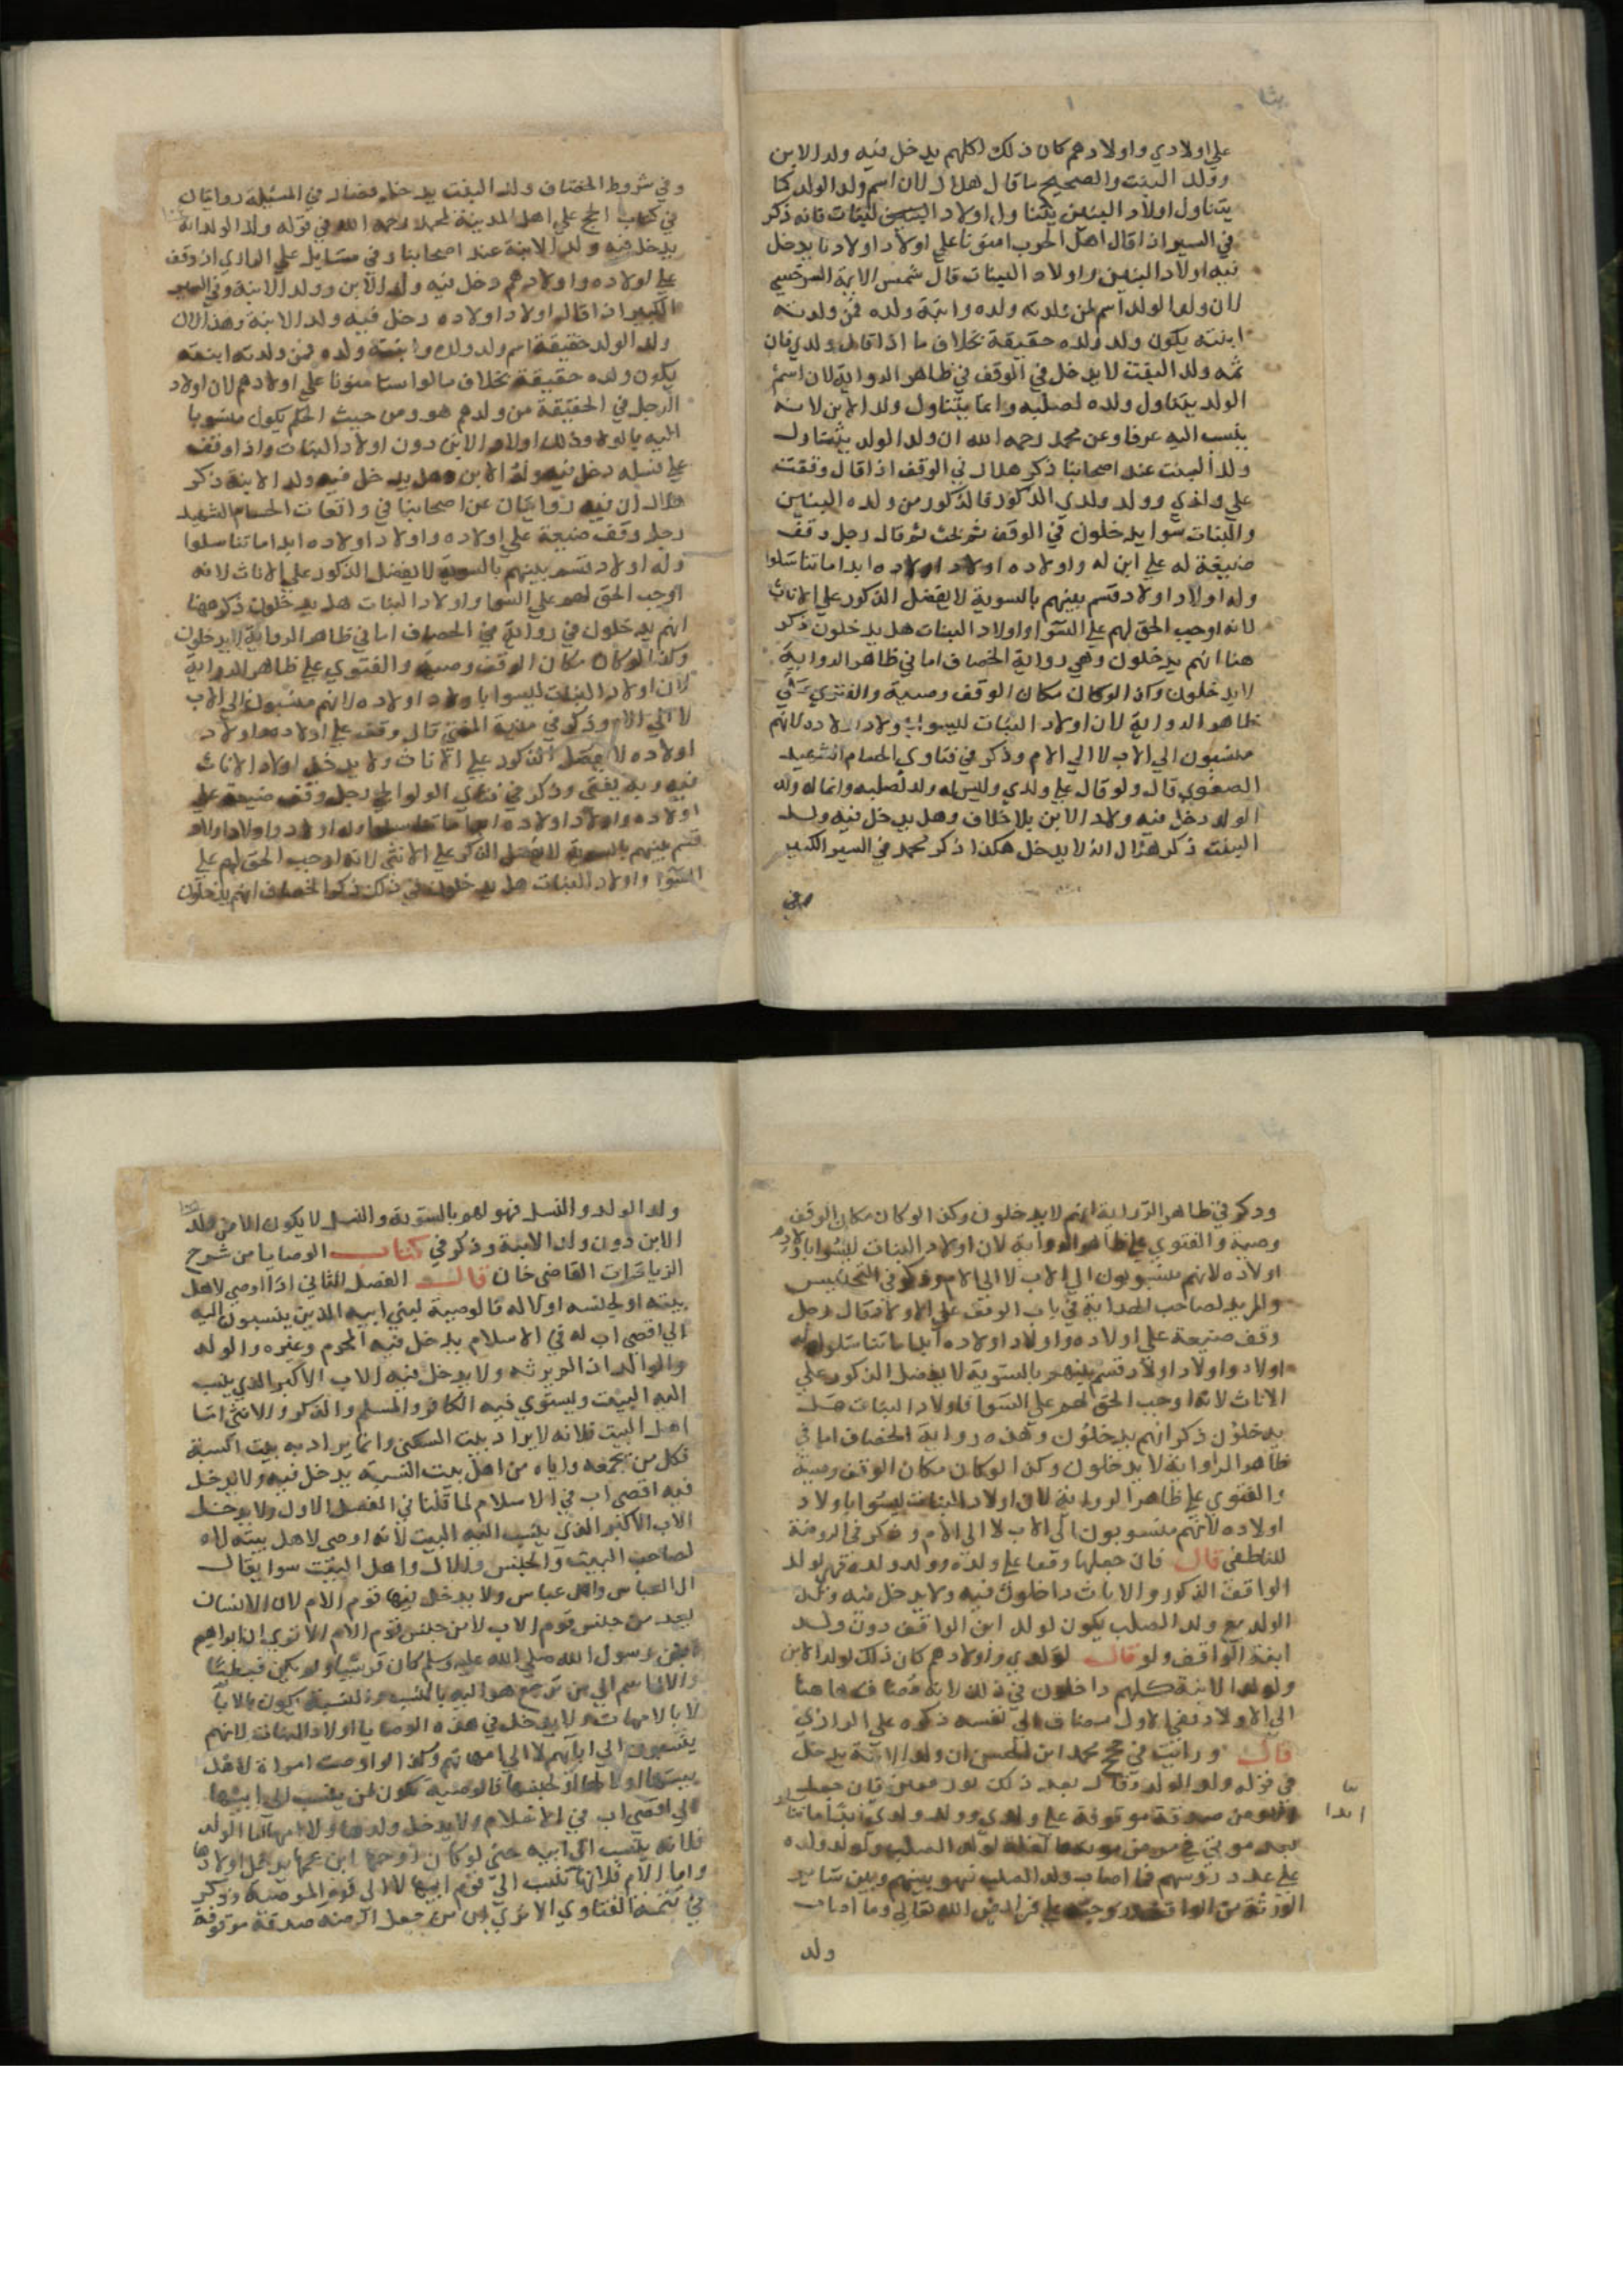 على اولادي واولادهم كان ذلك لكلهم يدخل فيه ولد الابن
وولد البنت والصحيح ما قال هلال لان اسم ولد الولد كما
يتناول اولاد البنين يتناول اولاد البنات فانه ذكر
في السير اذا قال اهل الحرب امنونا على اولاد اولادنا يدخل
فيه اولاد البنين واولاد البنات قال شمس الايمة السرخسي
لان ولد الولد اسم لمن ولدته ولده وابنته ولده فمن ولدته
ابنته يكون ولد ولده حقيقة بخلاف ما اذا قال ولدي فان
ثمه ولد البنت لا يدخل في الوقف في ظاهر الرواية لان اسم
الولد يتناول ولده لصلبه وانما يتناول ولد الابن لانه
ينسب اليه عرفا وعن محمد رحمه الله ان ولد الولد يتناول
ولد البنت عند اصحابنا ذكر هلال في الوقف اذا قال وقفت
على ولدي وولد ولدي الذكور فالذكور من ولده البنين
والبنات سوا يدخلون في الوقف ثم قال رجل وقف
ضيعة له على ابن له واولاده اولاد اولاده ابدا ما تناسلوا
وله اولاد اولاد قسم بينهم بالسوية لا يفضل الذكور على الاناث
لانه اوجب الحق لهم على السوا واولاد البنات هل يدخلون ذكر
هنا انهم يدخلون وهي رواية الخصاف اما في ظاهر الرواية
لا يدخلون وكذا لو كان مكان الوقف وصية والفتوي على
ظاهر الرواية لان اولاد البنات ليسوا باولاد اولاده لانهم
منسبون الي الاب لا الي الام وذكر في فتاوي الحسام الشهيد
الصغرى قال ولو قال على ولدي وليس له ولد لصلبه وانما له ولد
الولد دخل فيه ولد الابن بلا خلاف وهل يدخل فيه ولد
البنت ذكر هلال انه لا يدخل هكذا ذكر محمد في السير الكبير
وفي
وفي شروط الخصاف ولد البنت يدخل فصار في المسئلة روايتان
في كتاب الحج على اهل المدينة لمحمد رحمه الله في قوله ولد الولد انه
يدخل فيه ولد الابنة عند اصحابنا وفي مسايل على الرازي ان وقف
على اولاده واولادهم دخل فيه ولد الابن وولد الابنة وفي السير
الكبير اذا قال اولاد اولاده دخل فيه ولد الابنة وهذا لان
ولد الولد حقيقة اسم ولد ولده وابنته ولده فمن ولدته ابنته
يكون ولده حقيقة بخلاف ما لو استامنونا على اولادهم لان اولاد
الرجل في الحقيقة من ولدهم هو ومن حيث الحكم يكون منسوبا
اليه بالولاد وذلك اولاد الابن دون اولاد البنات واذا وقف
على نسله دخل فيه ولد الابن وهل يدخل فيه ولد الابنة ذكر
هلال ان فيه روايتان عن اصحابنا في واقعات الحسام الشهيد
رجل وقف ضيعة على اولاده واولاد اولاده ابدا ما تناسلوا
وله اولاد قسم بينهم بالسوية لا يفضل الذكور على الاناث لانه
اوجب الحق لهم على السوا واولاد البنات هل يدخلون ذكر ههنا
انهم يدخلون في رواية الخصاف اما في ظاهر الرواية لا يدخلون
وكذا لو كان مكان الوقف وصية والفتوي على ظاهر الرواية
لان اولاد البنات ليسوا باولاد اولاده لانهم منسبون الى الاب
لا الي الام وذكر في منية المفتي قال وقف على اولاده واولاد
اولاده لا يفضل الذكور على الاناث ولا يدخل اولاد الاناث
فيه وبه يفتى وذكر في فتاوي الولوالجي رجل وقف ضيعة على
اولاده واولاد اولاده ابدا ما تناسلوا وله اولاد واولاد اولاد
قسم بينهم بالسوية لا يفضل الذكر على الانثى لانه اوجب الحق لهم على
السوا واولاد البنات هل يدخلون في ذلك ذكر الخصاف انهم يدخلون
وذكر في ظاهر الرواية انهم لا يدخلون وكذا لو كان مكان الوقف
وصية والفتوي على ظاهر الرواية لان اولاد البنات ليسوا باولاد
اولاده لانهم منسوبون الى الاب لا الى الام وذكر في التجنيس
والمزيد لصاحب الهداية في باب الوقف على الاولاد قال رجل
وقف ضيعة على اولاده واولاد اولاده ابدا ما تناسلوا وله
اولاد واولاد اولاد قسم بينهم بالسوية لا يفضل الذكور على
الاناث لانه اوجب الحق لهم على السوا فاولاد البنات هل
يدخلون ذكر انهم يدخلون وهذه رواية الخصاف اما في
ظاهر الرواية لا يدخلون وكذا لو كان مكان الوقف وصية
والفتوي على ظاهر الرواية لان اولاد البنات ليسوا باولاد
اولاده لانهم منسوبون الى الاب لا الى الام وذكر في الروضة
للناطفي قال فان جعلها وقفا على ولده وولد ولده فهي لولد
الواقف الذكور والاناث داخلون فيه ولا يدخل فيه ولد
الولد مع ولد الصلب يكون لولد ابن الواقف دون ولد
ابنة الواقف ولو قال لولدي واولادهم كان ذلك لولد الابن
ولولد الابنة كلهم داخلون في ذلك لانه مضاف هاهنا
الى الاولاد وفي الاول مضاف الى نفسه ذكره على الرازي
قال ورايت في حج محمد ابن الحسن ان ولد الابنة يدخل
في قوله ولد الولد وقال بعد ذلك فان جعل
ارضه صدقة موقوفة على ولدي وولد ولدي ابدا ما تنا
ابدا
بعد موتي لولد الصلب ولولد ولده
على عدد رؤسهم فما اصاب ولد الصلب فهو بينهم وبين ساير
الورثة من الواقف على فرايض الله تعالى وما اصاب
ولد
ولد الولد والنسل فهو لهم بالسوية والنسل لا يكون الا من ولد
الابن دون ولد الابنة وذكر في كتاب الوصايا من شرح
الزيادات القاضي خان قال الفصل الثاني اذا اوصى لاهل
بيته او لجنسه او لاله فالوصية لبني ابيه الذين ينسبون اليه
الى اقصى اب له في الاسلام يدخل فيه المحرم وغيره والولد
والوالد اذا لم يرثه ولا يدخل فيه الاب الاكبر الذي ينسب
اليه البيت ويستوي فيه الكافر والمسلم والذكر والانثى اما
اهل البيت فلانه لا يراد بيت السكنى وانما يراد به بيت النسبة
فكل من يجمعه واياه من اهل بيت النسبة يدخل فيه ولا يدخل
فيه اقصى اب في الاسلام لما قلنا في الفصل الاول ولا يدخل
الاب الاكبر الذي ينسب اليه البيت لانه اوصى لاهل بيته لا
لصاحب البيت والجنس والال واهل البيت سوا يقال
ال العباس واهل عباس ولا يدخل فيها قوم الام لان الانسان
يعد من جنس قوم الاب لا من جنس قوم الام الا ترى ان ابراهيم
ابن رسول الله صلى الله عليه وسلم كان قرشيا ولم يكن قبطيا
والال اسم الى من يرجع هو اليه بالنسبة والنسبة يكون بالابا
لا بالامهات ولا يدخل في هذه الوصايا اولاد البنات لانهم
ينسبون الى ابايهم لا الى امهاتهم وكذا لو اوصت امراة لاهل
بيتها او لالها او لجنسها فالوصية تكون لمن ينسب الى ابيها
الى اقصى اب في الاسلام ولا يدخل ولدها ولا امها اما الولد
فلانه ينسب الى ابيه حتى لو كان زوجها ابن عمها يدخل اولادها
واما الام فلانها تنسب الى قوم ابيها لا الى قوم الموصية وذكر
في تتمة الفتاوي جعل ارضه صدقة موقوفة